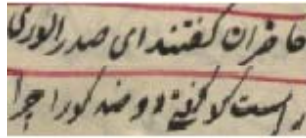 حاضران گفتند ای صدر الوری
راست گو گفتی دو ضد گو را چرا